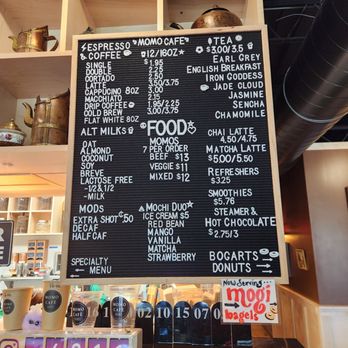 ESPRESSO MOMO CAFE
COFFEE 12/16OZ
SINGLE $1.95
DOUBLE 2.25
CORTADO
LATTE 3.50/3.75
CAPPUCINO 8OZ
MACCHIATO
DRIP COFFEE 1.95/2.25
COLD BREW 3.00/3.75
FLAT WHITE 8OZ
ALT MILKS
OAT
ALMOND
COCONUT
SOY
BREVE
LACTOSE FREE
-1/2 & 1/2
-MILK
MODS
EXTRA SHOT .50
DECAF
HALF CAF
SPECIALTY
MENU
FOOD
MOMOS
7 PER ORDER
BEEF $13
VEGGIE $11
MIXED $12
MOCHI DUO
ICE CREAM $5
RED BEAN
MANGO
VANILLA
MATCHA
STRAWBERRY
TEA
$3.00/3.5
EARL GREY
ENGLISH BREAKFAST
IRON GODDESS
JADE CLOUD
JASMINE
SENCHA
CHAMOMILE
CHAI LATTE
4.50/4.75
MATCHA LATTE
$5.00/5.50
REFRESHERS
$3.25
SMOOTHIES
$5.76
STEAMER &
HOT CHOCOLATE
$2.75/3
BOGARTS
DONUTS
Now Serving
mogi
bagels
MOMO CAFE
16
10
02
10
15
07